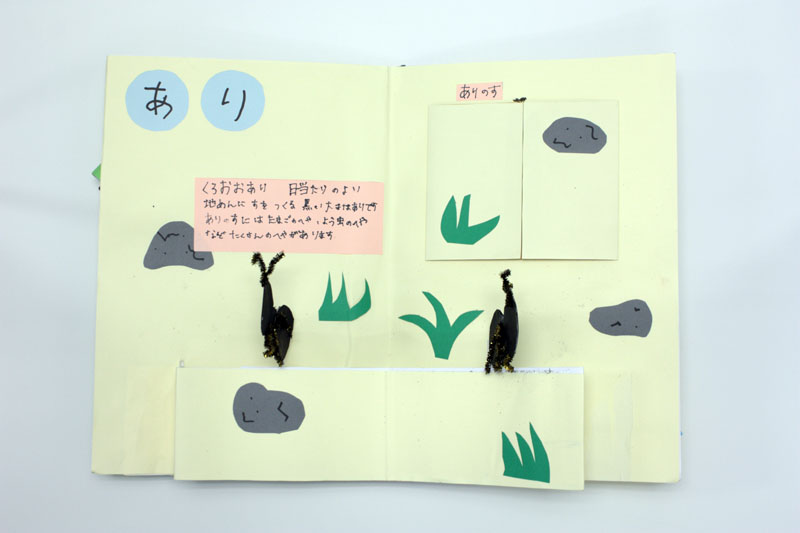 あり
ありのす
くろおおあり 日当たりのよい
地めんに すをつくる 黒い大きなありです
ありのすには たまごのへや、よう虫のへや
など たくさんのへやがあります